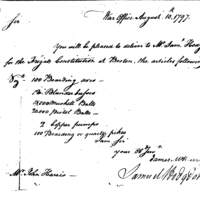 War Office August 10. 1797.
Sir
You will be pleased to deliver to Mr Saml
for the Frigate Constitution at Boston, the articles following
100 Boarding axes
12 Blunderbusses
Musket Balls
20.000 Pistol Balls
2 Copper pumps
100 Boarding or quarter pikes
I am Sir
your
Mr. John Harris
Samuel Hodgdon